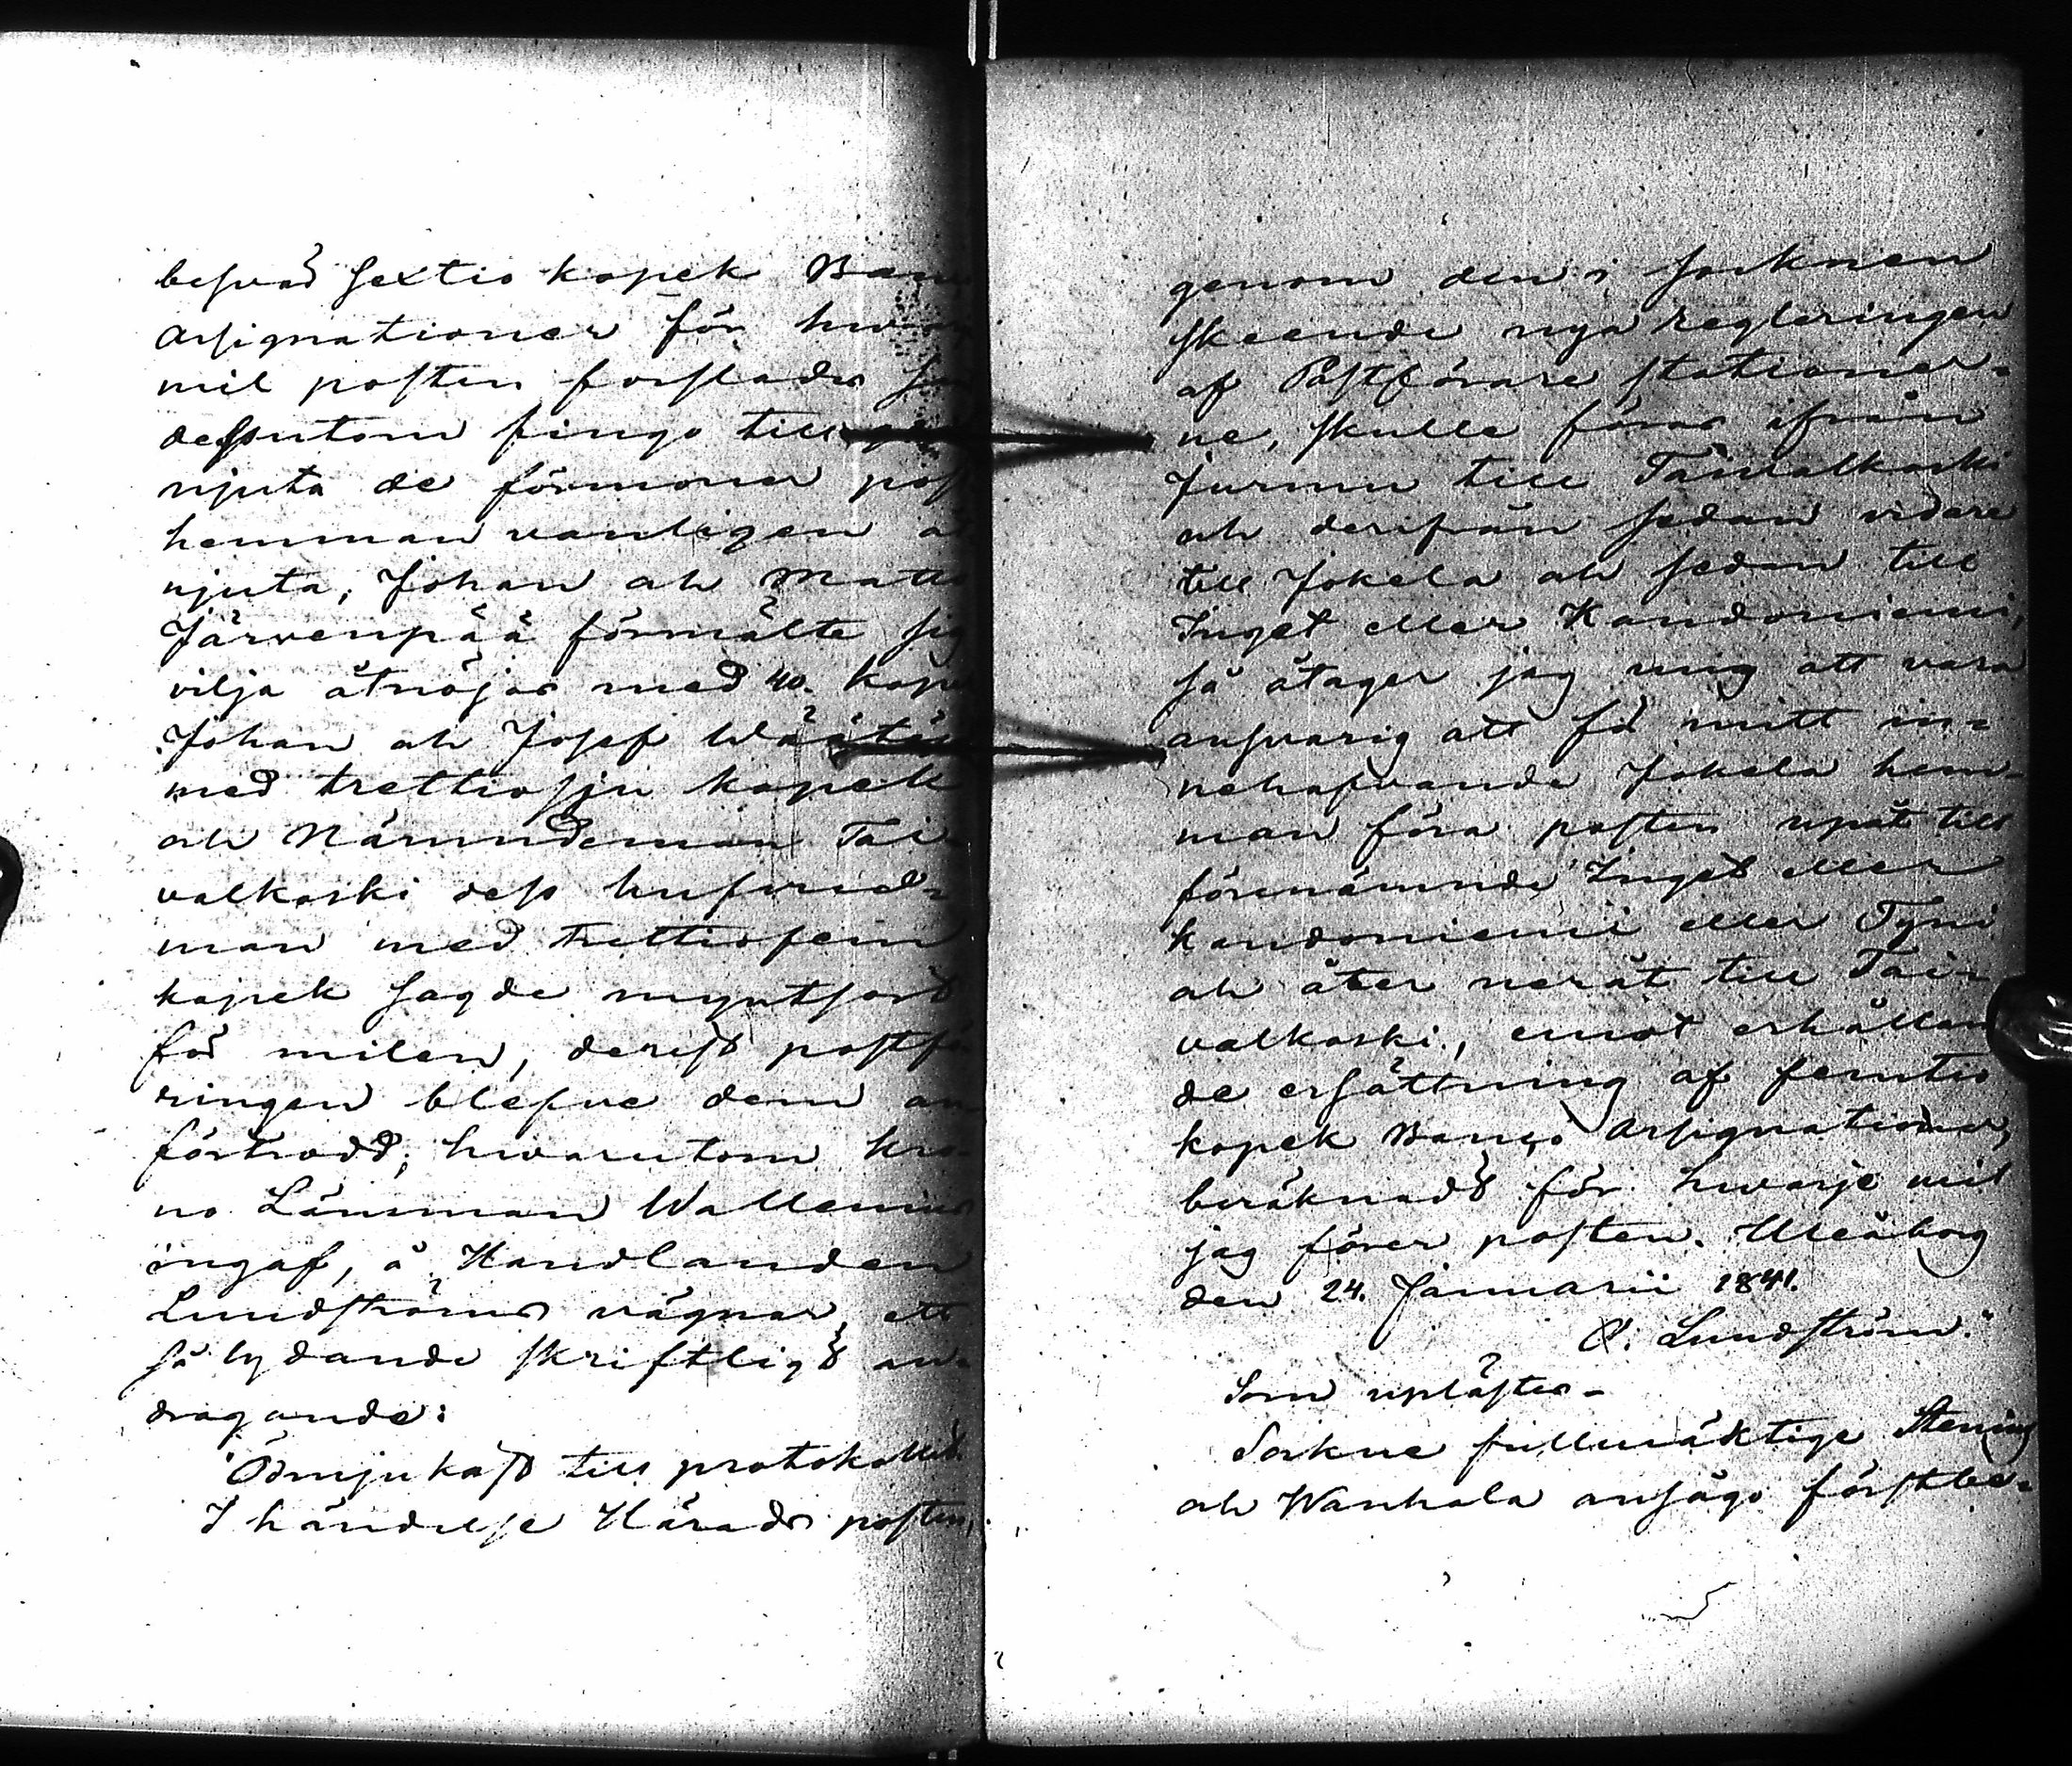 besvär sextio kopek Banco
Assignationer för hvarje
mil posten forslades som
dessutom fingo tillgodo
njuta de förmoner post
hemman vanligen åt
njuta, Johan och Matts
Järvenpää förmälte sig
vilja åtnöjas med 40. kopek
Johan och Josef
med trettiosju kopek
och Nämndeman Tai-
valkoski dess husbond-
man med trettiofem
kopek sagde myntsort
för milen, derest postfö-
ringen blefve dem an-
förtrodd; hvarutom Kro-
no Länsman Wallenius
ingaf, å Handlanden
Lundströms vägnar, ett
så lydande skriftligt an-
dragande:
"Ödmjukast till protokollet.
I händelse Härads posten,
genom den i socknen
skeende nya regleringen
af Postförare stationer-
ne, skulle föras ifrån
Jurmu till Taivalkoski
och derifrån sedan vidare
till Jokela och sedan till
Inget eller Kondoniemi,
så åtager jag mig att vara
ansvarig att få mitt in-
nehafvande Jokela hem-
man föra posten upåt till
förenämnde Inget eller
Kondoniemi eller Tyni
och åter neråt till Tai-
valkoski, emot erhållan
de ersättning af femtio
kopek Banco Assignationer,
beräknadt för hvarje mil
jag förer posten. Uleåborg
den 24. Januarii 1841.
O. Lundström."
Som uplästes.-
Sockne fullmäktige Stening
och Wanhala ansågo förstbe-